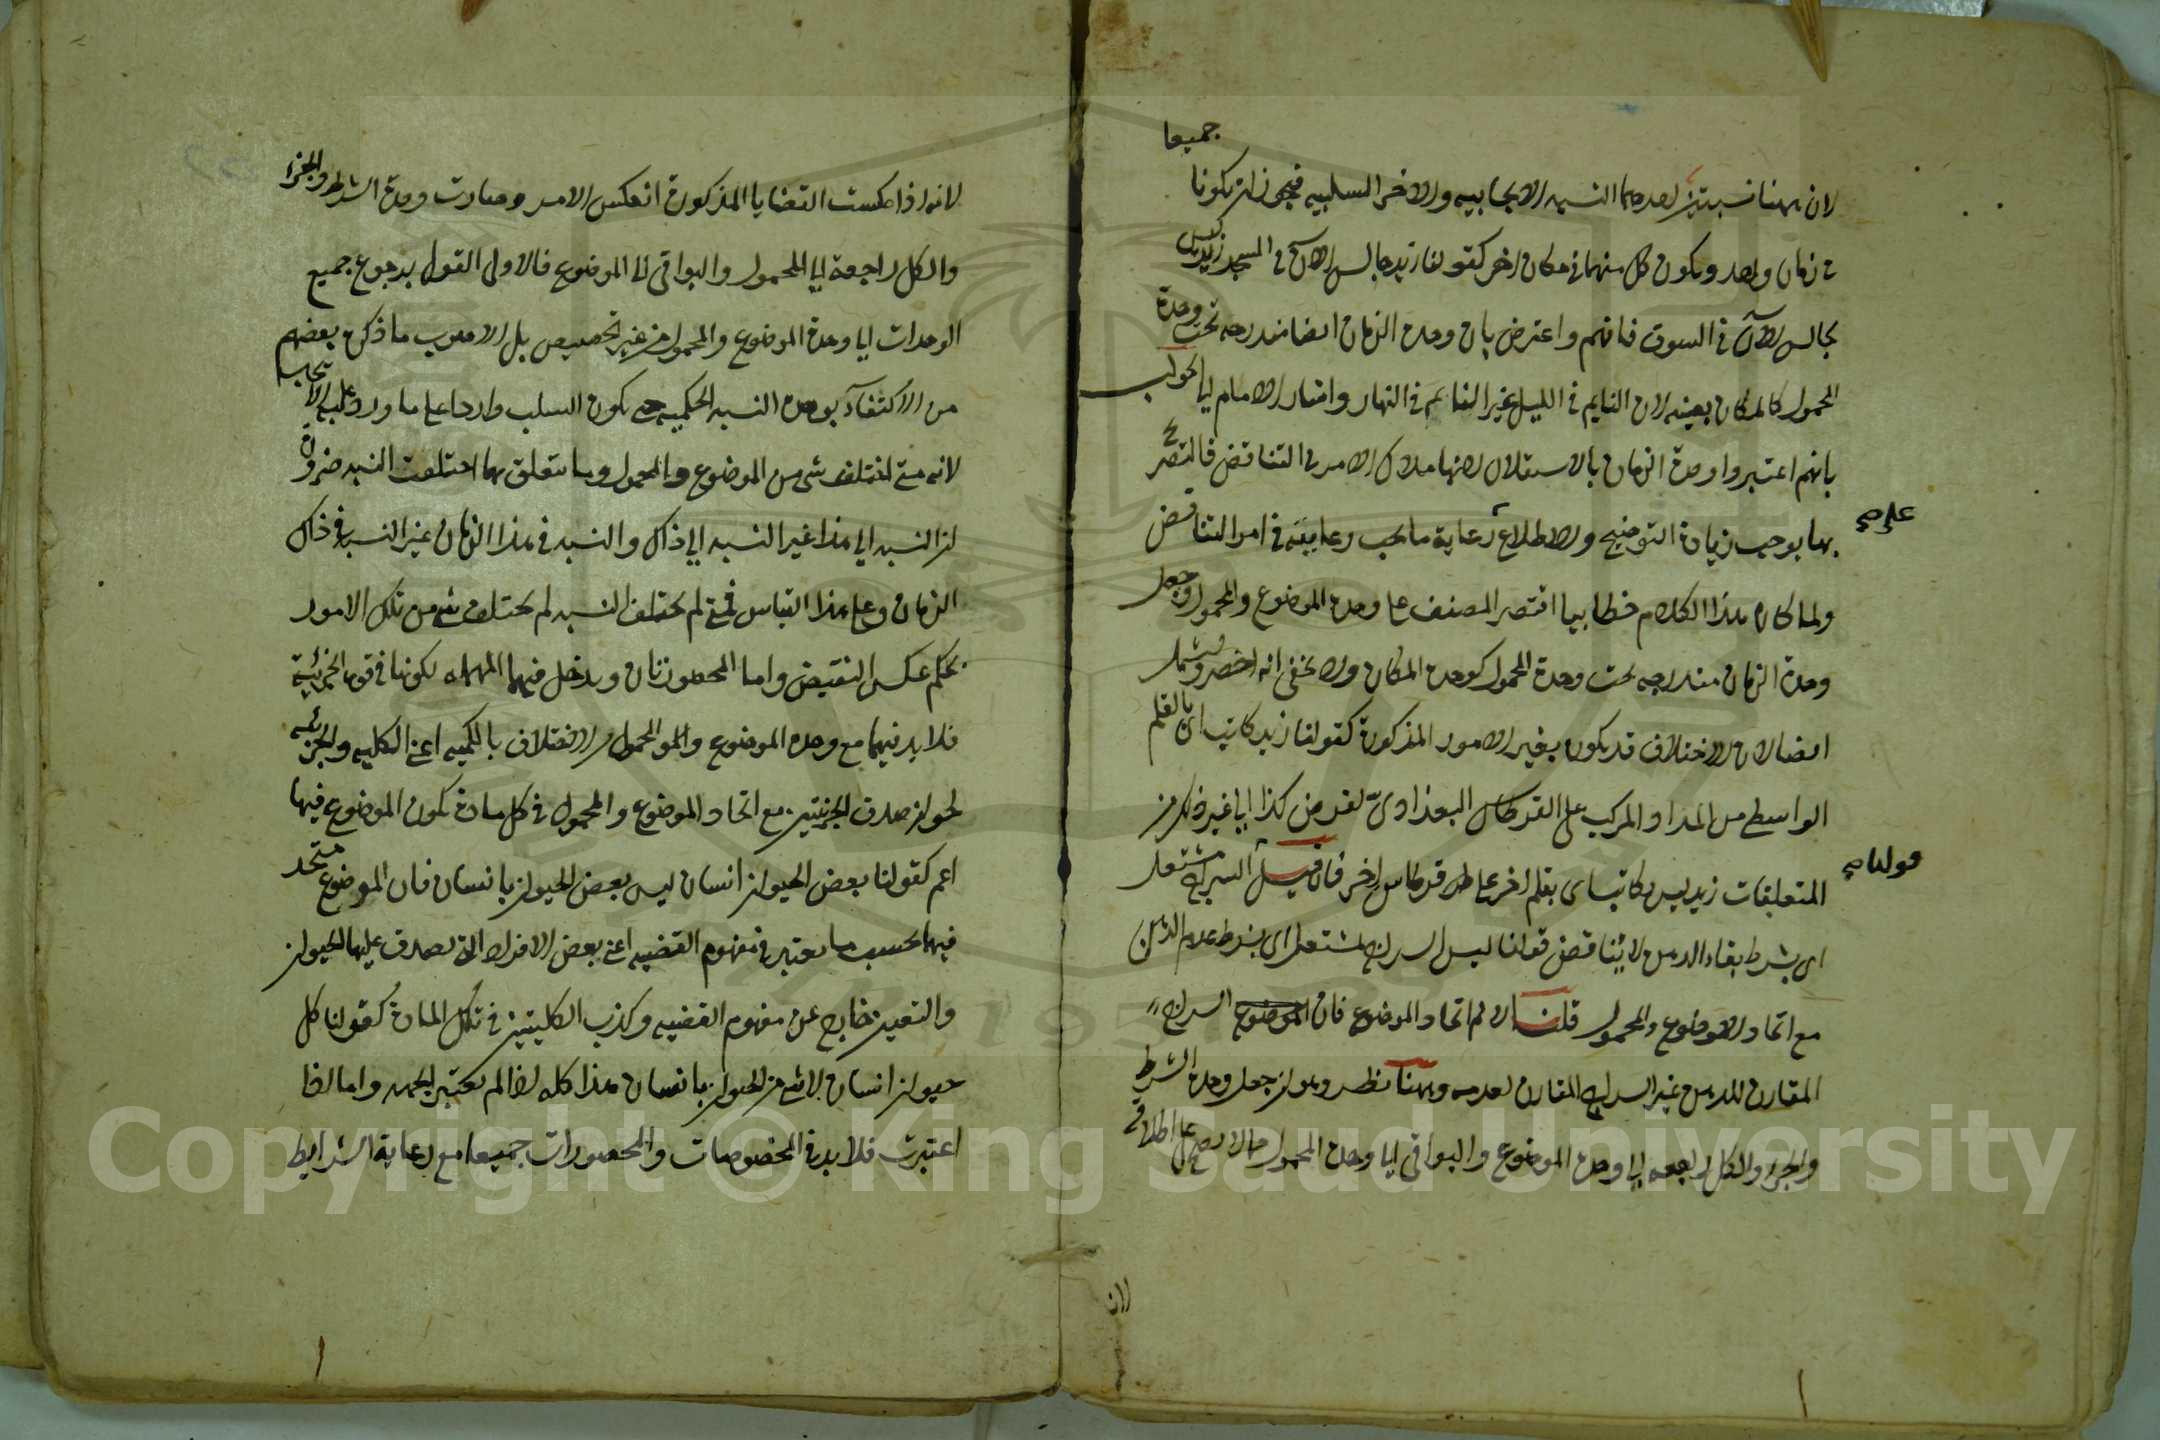 لان ههنا نسبتين احدهما النسبه الايجابيه والاخر السلبيه فيجوز ان يكونا جميعا
في زمان واحد ويكون كل منهما في مكان اخر كقولنا زيد جالس الآن في المسجد زيد ليس
بجالس الآن في السوق فافهم واعترض بان وحدة الزمان ايضا مندرجه تحت وحدة
المحمول كالمكان بعينه لان النايم في الليل غير النايم في النهار واشار الامام الي الجواب
بانهم اعتبروا وحدة الزمان بالاستقلال لانها ملاك الامر في التناقض فالتصريح
بها يوجب زيادة التوضيح والاطلاع رعاية ما يجب رعايته في امر التناقض
على صح
ولما كان هذا الكلام خطابيا اقتصر المصنف على وحدة الموضوع والمحمول وجعل
وحدة الزمان مندرجه تحت وحدة المحمول كوحدة المكان ولا يخفى انه اخصر واشمل
ايضا لان الاختلاف قد يكون بغير الامور المذكورة كقولنا زيد كاتب اى بالقلم
الواسطي من المداد المركب على القرطاس البغدادي لغرض كذا الي غير ذلك من
المتعلقات زيد ليس بكاتب اى بقلم اخر على قرطاس اخر فان قيل السراج مشتعل
قولنا صح
اى بشرط بقاء الدهن لا يناقض قولنا ليس السراج بمشتعل اى بشرط عدم الدهن
مع اتحاد الموضوع والمحمول قلنا لا نم اتحاد الموضوع فان الموضوع السراج
المقارن للدهن غير السراج المقارن لعدمه وههنا نظر وهو ان جعل وحدة الشرط
والجزء والكل راجعه الي وحدة الموضوع والبواقي الي وحدة المحمول مما لا يصح على اطلاقه
لان
لانه اذا عكست القضايا المذكورة انعكس الامر وصارت وحدة الشرط والجزء
والكل راجعة الي المحمول والبواقي الى الموضوع فالاولى القول برجوع جميع
الوحدات الي وحدة الموضوع والمحمول من غير تخصيص بل الاصوب ما ذكره بعضهم
من الاكتفاء بوحدة النسبه الحكميه حتى يكون السلب واردا على ما ورد عليه الايجاب
لانه متى اختلف شئ من الموضوع والمحمول وما يتعلق بهما اختلفت النسبه ضرورة
ان النسبه الي هذا غير النسبه الي ذاك والنسبه في هذا الزمان غير النسبه في ذاك
الزمان وعلى هذا القياس فمتى لم يختلف النسبه لم يختلف شئ من تلك الامور
بحكم عكس النقيض واما المحصورتان ويدخل فيهما المهمله لكونها في قوة الجزئية
فلا بد فيهما مع وحدة الموضوع والمحمول من الاختلاف بالكميه اعني الكليه والجزئيه
لجواز صدق الجزئيتين مع اتحاد الموضوع والمحمول في كل مادة يكون الموضوع فيها
اعم كقولنا بعض الحيوان انسان ليس بعض الحيوان بانسان فان الموضوع متحد
فيهما بحسب ما يعتبر في مفهوم القضيه اعني بعض الافراد التي يصدق عليها الحيوان
والتعيين خارج عن مفهوم القضيه وكذب الكليتين في تلك المادة كقولنا كل
حيوان انسان لا شئ من الحيوان بانسان هذا كله اذا لم يعتبر الجهه واما اذا
اعتبرت فلا بد في المخصوصات والمحصورات جميعا مع رعاية الشرايط
Copyright © King Saud University